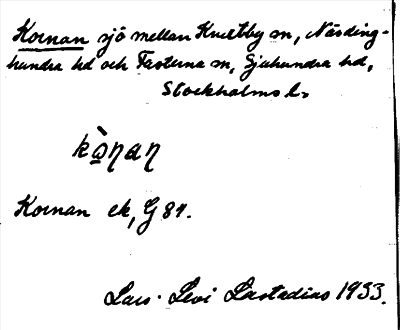 Kornan sjö mellan Knutby sn, Närding-
hundra hd och Fasterna sn, Sjuhundra hd,
Stockholms l.
kὰ̱ηaη
Kornan ek, G 84.
Lars Levi Læstadius 1933.